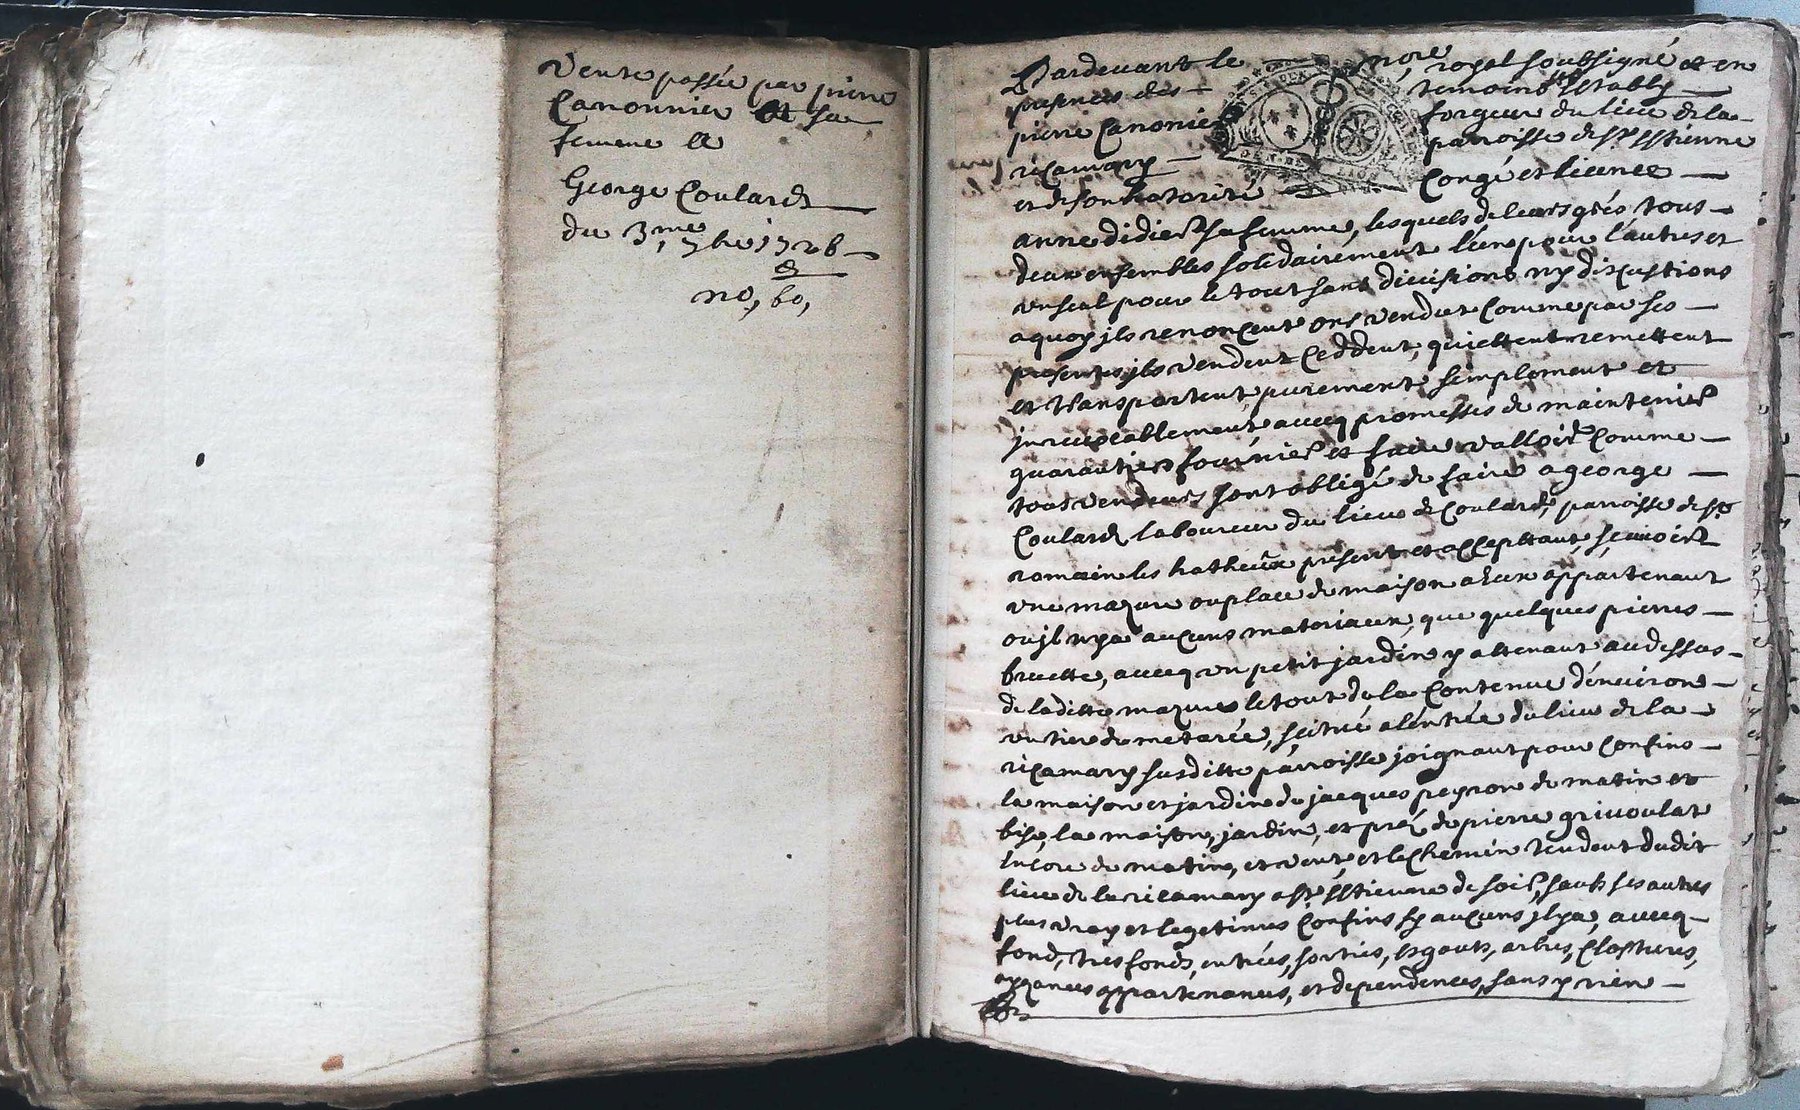 Vente passée par pierre
Canonnier et sa
femme a
George Coulard
du 3me, 7bre 1726
&
no, 60,
Pardevant le nore, royal soubsigné et en
presences des temoins establys
pierre Canonier forgeur du lieu de la
ricamary parroisse de st estienne
et de son hatorité Congé et licence
anne didier sa femme, lesquels de leurs grés tous
deux ensembles solidairement l'un pour l'autres et
un seul pour le tout sans divisions ny discustions
a quoy jls renoncent ont vendut Comme par ses
presentes jls vendent Ceddent, quiettent remettent
et transportent, purement semplement et
jrrevocablement avecq promesses de maintenir
guarantir fournir et faire valloir Comme
tous vendeurs sont obligé de faire a george
Coulard laboureur du lieu de Coulard, parroisse de st
romain les hatheux present et acceptant, scavoir
une mazure ou place de maison a eux appartenant
ou jl n'y a aucuns materiaux, que quelques pierres
bruttes, avecq un petit jardin y attenant au dessus
de la ditte mazures le tout de la Contenue d'environ
un tier de meterée, scitué a l'entrée du lieu de la
ricamary susditte parroisse joignant pour Confins
la maison et jardin de jacques peyron de matin et
bise, la maison, jardin, et pré de pierre grivoulat
encore de matin, et vent, et le Chemin tendent dudit
lieu de la ricamary a st estienne de soir, sauf ses autres
plus vray et legetimes Confins sy aucuns jl y a, avecq
fond, tresfonds, entrées, sorties, esgouts, arbres, Clostures,
ayzances appartenances, et dependences, sans y rien